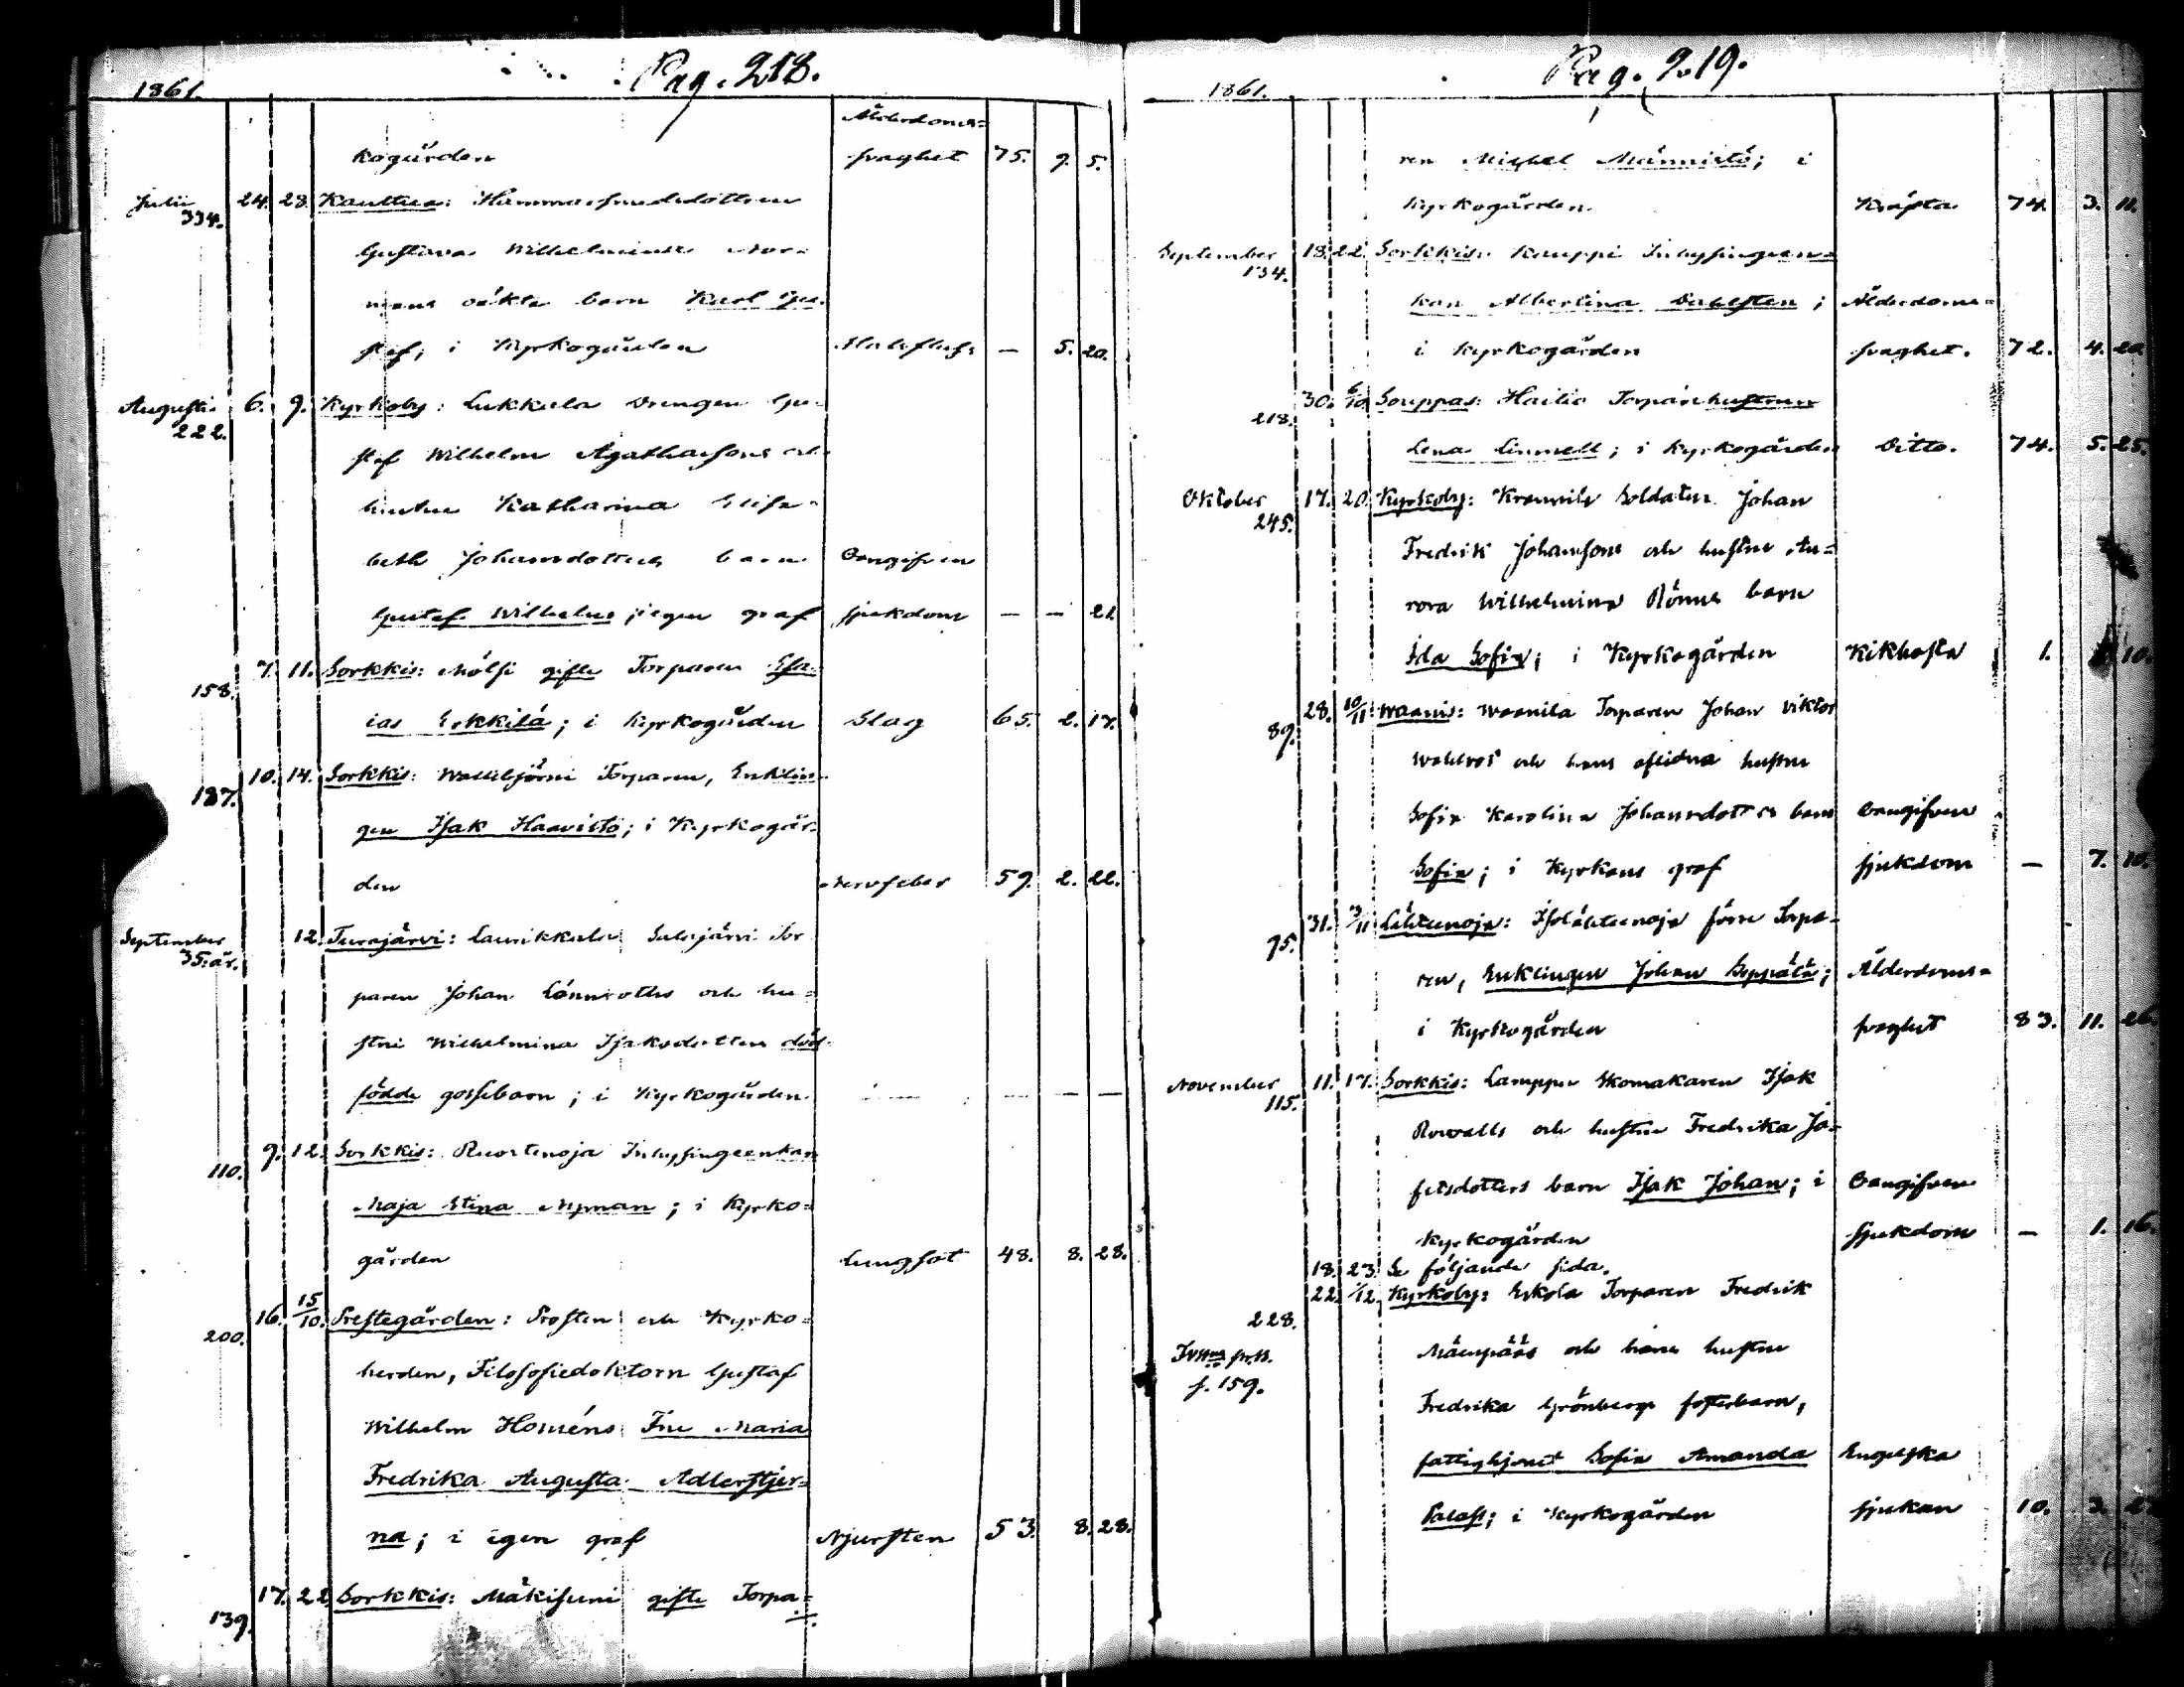 1861. Pag. 218.
Ålderdoms=
kogården svaghet 75. 9. 5.
Julii 334. 24. 28. Kauttua: Hammarsmedsdottren
Gustava Wilhelmina Nor-
mans oäkta barn Karl Gu-
staf; i Kyrkogården Halsfluss — 5. 20.
Augusti 222. 6. 9. Kyrkoby: Lukkala Drengen Gu-
staf Wilhelm Agathasons och
hustru Katharina Elisa-
beth Johansdotters barn Oangifven
Gustaf Wilhelm; i egen graf sjukdom — — 21.
158. 7. 11. Sorkkis: Mölsi gifte Torparen Esa-
ias Erkkilä; i Kyrkogården Slag 65. 2. 17.
187. 10. 14. Sorkkis: Torparen, Enklin-
gen Isak Haavisto; i Kyrkogår-
den Nervfeber 59. 2. 22.
September 35. är. 12. Turajärvi: Laurikkala Salojärvi Tor
paren Johan Lönnroths och hu-
stru Wilhelmina Isaksdotters död-
födde gossebarn; i Kyrkogården — — — —
110. 9. 12. Sorkkis: Ruortenoja Inhysingeenkan
Maja Stina Nyman; i Kyrko=
gården Lungsot 48. 8. 28.
200. 16. 15/10. Prestegården: Prosten och Kyrko-
herden, Filosofiedoktorn Gustaf
Wilhelm Homéns Fru Maria
Fredrika Augusta Adlerstjer-
na; i egen graf Njursten 53. 8. 28.
139. 17. 22. Sorkkis: Mäkisuni gifte Torpa=
1861. Pag. 219.
ren Michel Männistö; i
Kyrkogården Kräfta 74. 3. 11.
September 134. 18. 22. Sorkkis: Kauppi Inhysingeen=
kan Albertina Dahlsten; Ålderdoms=
i Kyrkogården svaghet. 72. 4. 20.
218. 30. 6/10. Souppas: Heilio Torparehustrun
Lena Linnell; i Kyrkogården Ditto. 74. 5. 25.
Oktober 245. 17. 20. Kyrkoby: Krannila Soldaten Johan
Fredrik Johansons och hustru Au=
rora Wilhelmina Röms barn
Ida Sofia; i Kyrkogården Kikhosta 1. 10.
89. 28. 10/11 Waanis: Waanila Torparen Johan Viktor
Wahlros och hans aflidna hustru
Sofia Karolina Johansdotters barn Oangifven
Sofia; i Kyrkans graf sjukdom — 7. 10.
75. 31. 3/11 Lähteenoja: Isolähteenoja förre Torpa-
ren, Enklingen Johan Seppälä; Ålderdoms=
i Kyrkogården svaghet 83. 11. 26.
November 115. 11. 17. Sorkkis: Lamppu Skomakaren Isak
Rovalls och hustru Fredrika Jo=
sefsdotters barn Isak Johan; i Oangifven
Kyrkogården sjukdom — 1. 16.
18. 23. Se följande sida.
228. 22. 1/12. Kyrkoby: Eskola Torparen Fredrik
Mäenpääs och hans hustru
f. 159.
Fredrika Grönbergs fosterbarn,
fattighjonet Sofia Amanda Engelska
Palass; i Kyrkogården sjukan 10. 3. 27.